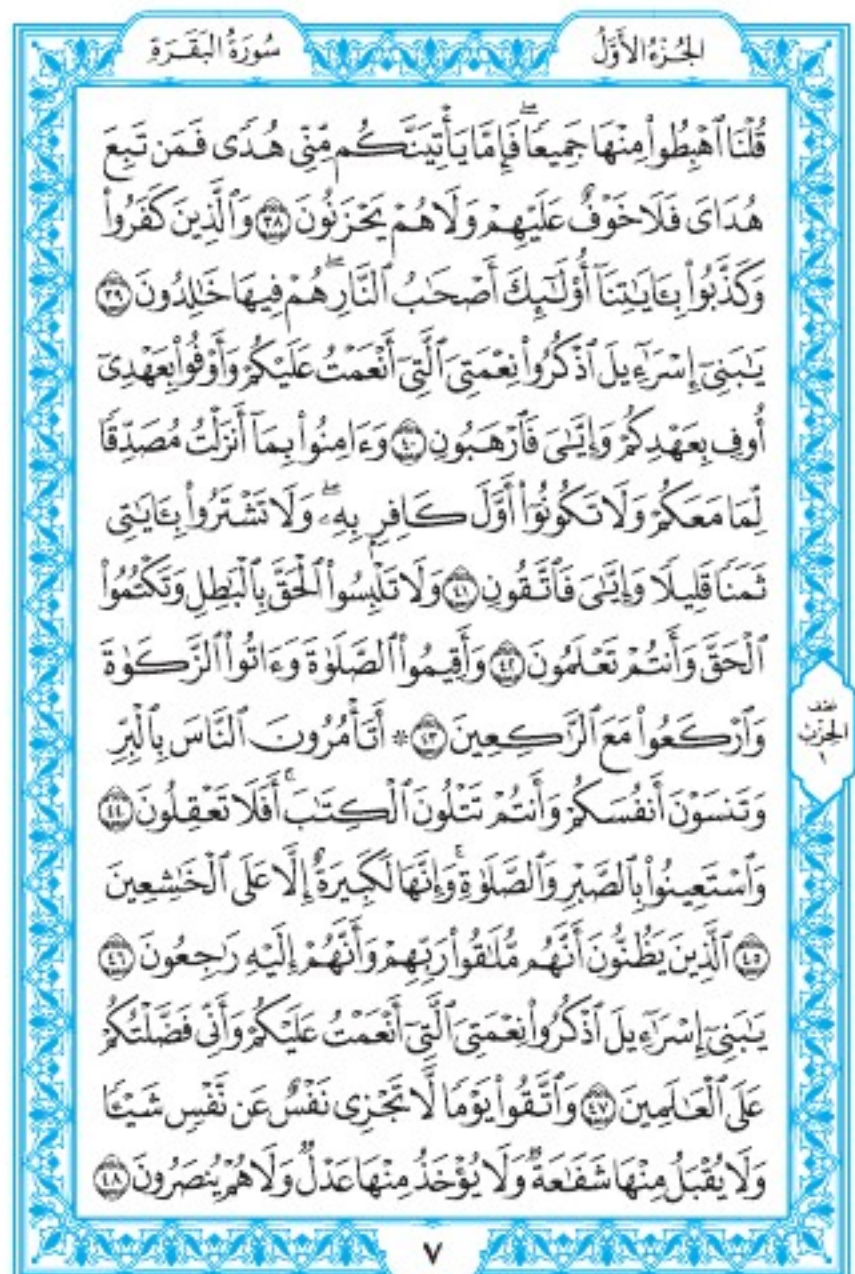 الجُزْءُ الأَوَّلُ
سُورَةُ البَقَرَةِ
قُلْنَا ٱهْبِطُوا۟ مِنْهَا جَمِيعًاۖ فَإِمَّا يَأْتِيَنَّكُم مِّنِّى هُدًى فَمَن تَبِعَ
هُدَاىَ فَلَا خَوْفٌ عَلَيْهِمْ وَلَا هُمْ يَحْزَنُونَ ٣٨ وَٱلَّذِينَ كَفَرُوا۟
وَكَذَّبُوا۟ بِـَٔايَٰتِنَآ أُو۟لَٰٓئِكَ أَصْحَٰبُ ٱلنَّارِۖ هُمْ فِيهَا خَٰلِدُونَ ٣٩
يَٰبَنِىٓ إِسْرَٰٓءِيلَ ٱذْكُرُوا۟ نِعْمَتِىَ ٱلَّتِىٓ أَنْعَمْتُ عَلَيْكُمْ وَأَوْفُوا۟ بِعَهْدِىٓ
أُوفِ بِعَهْدِكُمْ وَإِيَّٰىَ فَٱرْهَبُونِ ٤٠ وَءَامِنُوا۟ بِمَآ أَنزَلْتُ مُصَدِّقًا
لِّمَا مَعَكُمْ وَلَا تَكُونُوٓا۟ أَوَّلَ كَافِرٍۭ بِهِۦۖ وَلَا تَشْتَرُوا۟ بِـَٔايَٰتِى
ثَمَنًا قَلِيلًا وَإِيَّٰىَ فَٱتَّقُونِ ٤١ وَلَا تَلْبِسُوا۟ ٱلْحَقَّ بِٱلْبَٰطِلِ وَتَكْتُمُوا۟
ٱلْحَقَّ وَأَنتُمْ تَعْلَمُونَ ٤٢ وَأَقِيمُوا۟ ٱلصَّلَوٰةَ وَءَاتُوا۟ ٱلزَّكَوٰةَ
وَٱرْكَعُوا۟ مَعَ ٱلرَّٰكِعِينَ ٤٣ * أَتَأْمُرُونَ ٱلنَّاسَ بِٱلْبِرِّ
وَتَنسَوْنَ أَنفُسَكُمْ وَأَنتُمْ تَتْلُونَ ٱلْكِتَٰبَۚ أَفَلَا تَعْقِلُونَ ٤٤
وَٱسْتَعِينُوا۟ بِٱلصَّبْرِ وَٱلصَّلَوٰةِۚ وَإِنَّهَا لَكَبِيرَةٌ إِلَّا عَلَى ٱلْخَٰشِعِينَ
٤٥ ٱلَّذِينَ يَظُنُّونَ أَنَّهُم مُّلَٰقُوا۟ رَبِّهِمْ وَأَنَّهُمْ إِلَيْهِ رَٰجِعُونَ ٤٦
يَٰبَنِىٓ إِسْرَٰٓءِيلَ ٱذْكُرُوا۟ نِعْمَتِىَ ٱلَّتِىٓ أَنْعَمْتُ عَلَيْكُمْ وَأَنِّى فَضَّلْتُكُمْ
عَلَى ٱلْعَٰلَمِينَ ٤٧ وَٱتَّقُوا۟ يَوْمًا لَّا تَجْزِى نَفْسٌ عَن نَّفْسٍ شَيْـًٔا
وَلَا يُقْبَلُ مِنْهَا شَفَٰعَةٌ وَلَا يُؤْخَذُ مِنْهَا عَدْلٌ وَلَا هُمْ يُنصَرُونَ ٤٨
نصف
الحِزْب
١
٧